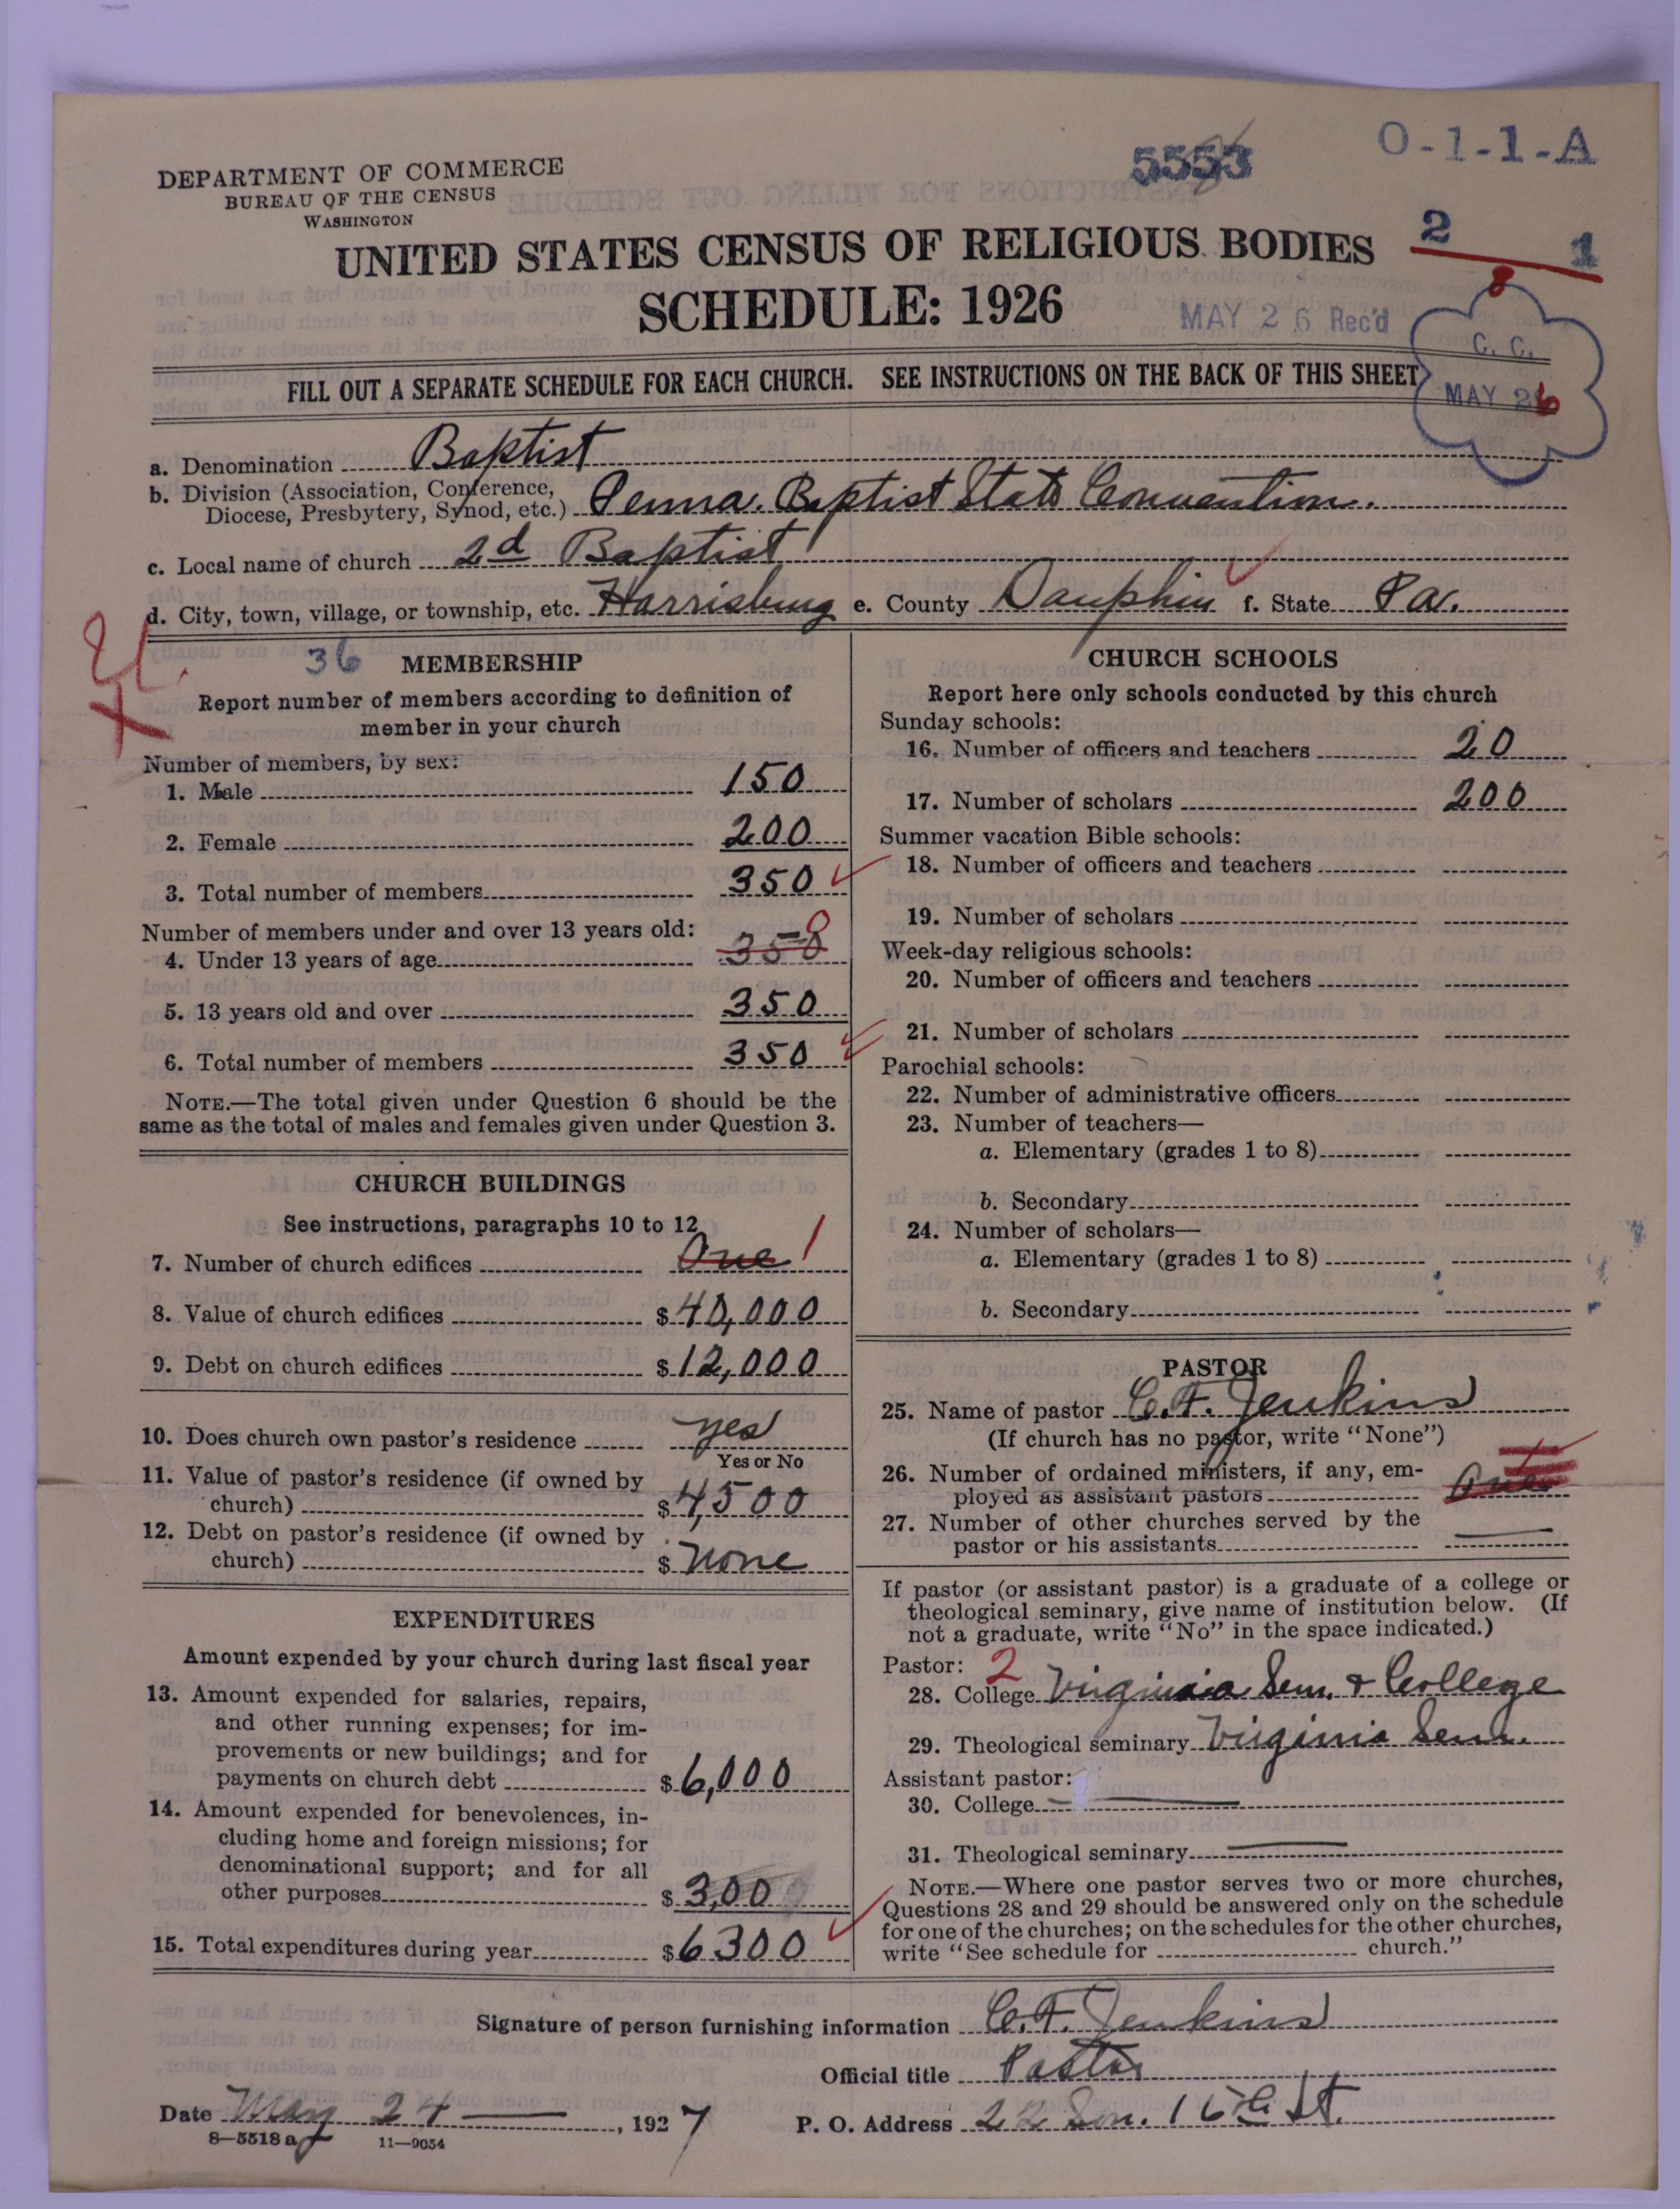 DEPARTMENT OF COMMERCE
BUREAU OF THE CENSUS
WASHINGTON
5553
O-1-1-A
2 1
8
UNITED STATES CENSUS OF RELIGIOUS BODIES
SCHEDULE: 1926
MAY 26 Rec'd
C. C.
MAY 26
FILL OUT A SEPARATE SCHEDULE FOR EACH CHURCH. SEE INSTRUCTIONS ON THE BACK OF THIS SHEET
a. Denomination Baptist
b. Division (Association, Conference, Diocese, Presbytery, Synod, etc.) Penna. Baptist State Convention.
c. Local name of church 2d Baptist
d. City, town, village, or township, etc. Harrisburg e. County Dauphin f. State Pa.
36 MEMBERSHIP
Report number of members according to definition of
member in your church
Number of members, by sex:
1. Male 150
2. Female 200
3. Total number of members 350
Number of members under and over 13 years old:
4. Under 13 years of age 350 0
5. 13 years old and over 350
6. Total number of members 350
NOTE.—The total given under Question 6 should be the
same as the total of males and females given under Question 3.
CHURCH BUILDINGS
See instructions, paragraphs 10 to 12
7. Number of church edifices One 1
8. Value of church edifices $40,000
9. Debt on church edifices $12,000
10. Does church own pastor's residence yes
Yes or No
11. Value of pastor's residence (if owned by
church) $4500
12. Debt on pastor's residence (if owned by
church) $none
EXPENDITURES
Amount expended by your church during last fiscal year
13. Amount expended for salaries, repairs,
and other running expenses; for im-
provements or new buildings; and for
payments on church debt $6,000
14. Amount expended for benevolences, in-
cluding home and foreign missions; for
denominational support; and for all
other purposes $300
15. Total expenditures during year $6300
CHURCH SCHOOLS
Report here only schools conducted by this church
Sunday schools:
16. Number of officers and teachers 20
17. Number of scholars 200
Summer vacation Bible schools:
18. Number of officers and teachers
19. Number of scholars
Week-day religious schools:
20. Number of officers and teachers
21. Number of scholars
Parochial schools:
22. Number of administrative officers
23. Number of teachers—
a. Elementary (grades 1 to 8)
b. Secondary
24. Number of scholars—
a. Elementary (grades 1 to 8)
b. Secondary
PASTOR
25. Name of pastor C. F. Jenkins
(If church has no pastor, write "None")
26. Number of ordained ministers, if any, em-
ployed as assistant pastors One
27. Number of other churches served by the
pastor or his assistants
If pastor (or assistant pastor) is a graduate of a college or
theological seminary, give name of institution below. (If
not a graduate, write "No" in the space indicated.)
Pastor: 2
28. College Virginia Sem. & College
29. Theological seminary Virginia Sem.
Assistant pastor:
30. College
31. Theological seminary
NOTE.—Where one pastor serves two or more churches,
Questions 28 and 29 should be answered only on the schedule
for one of the churches; on the schedules for the other churches,
write "See schedule for church."
Signature of person furnishing information C. F. Jenkins
Official title Pastor
Date May 24, 1927 P. O. Address 22 So. 16th St.
8—5518a 11—9054